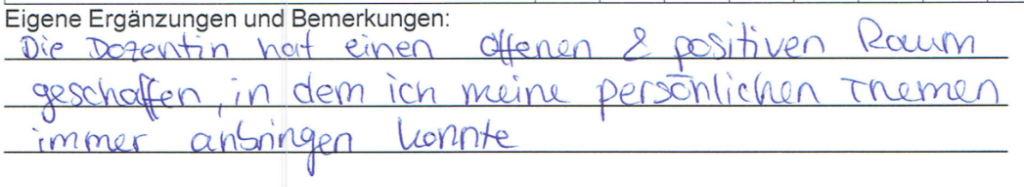 Eigene Ergänzungen und Bemerkungen:
Die Dozentin hat einen offenen & positiven Raum
geschaffen, in dem ich meine persönlichen Themen
immer anbringen konnte